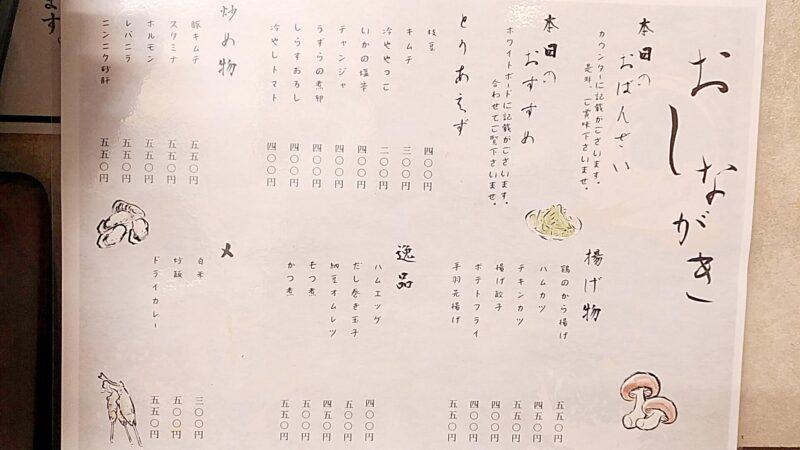 おしながき
本日の
おばんざい
カウンターに記載がございます。
是非、ご賞味下さいませ。
本日の
おすすめ
ホワイトボードに記載がございます。
合わせてご覧下さいませ。
とりあえず
枝豆 四〇〇円
キムチ 三〇〇円
冷ややっこ 二〇〇円
いかの塩辛 四〇〇円
チャンジャ 四〇〇円
うずらの煮卵 四〇〇円
しらすおろし 四〇〇円
冷やしトマト 四〇〇円
炒め物
豚キムチ 五五〇円
スタミナ 五五〇円
ホルモン 五五〇円
レバニラ 五五〇円
ニンニク砂肝 五五〇円
揚げ物
鶏のから揚げ 五五〇円
ハムカツ 四五〇円
チキンカツ 五五〇円
揚げ餃子 四〇〇円
ポテトフライ 四〇〇円
手羽元揚げ 五五〇円
逸品
ハムエッグ 四〇〇円
だし巻き玉子 五五〇円
納豆オムレツ 四五〇円
もつ煮 五〇〇円
かつ煮 五五〇円
〆
白米 三〇〇円
炒飯 五〇〇円
ドライカレー 五五〇円
ます。